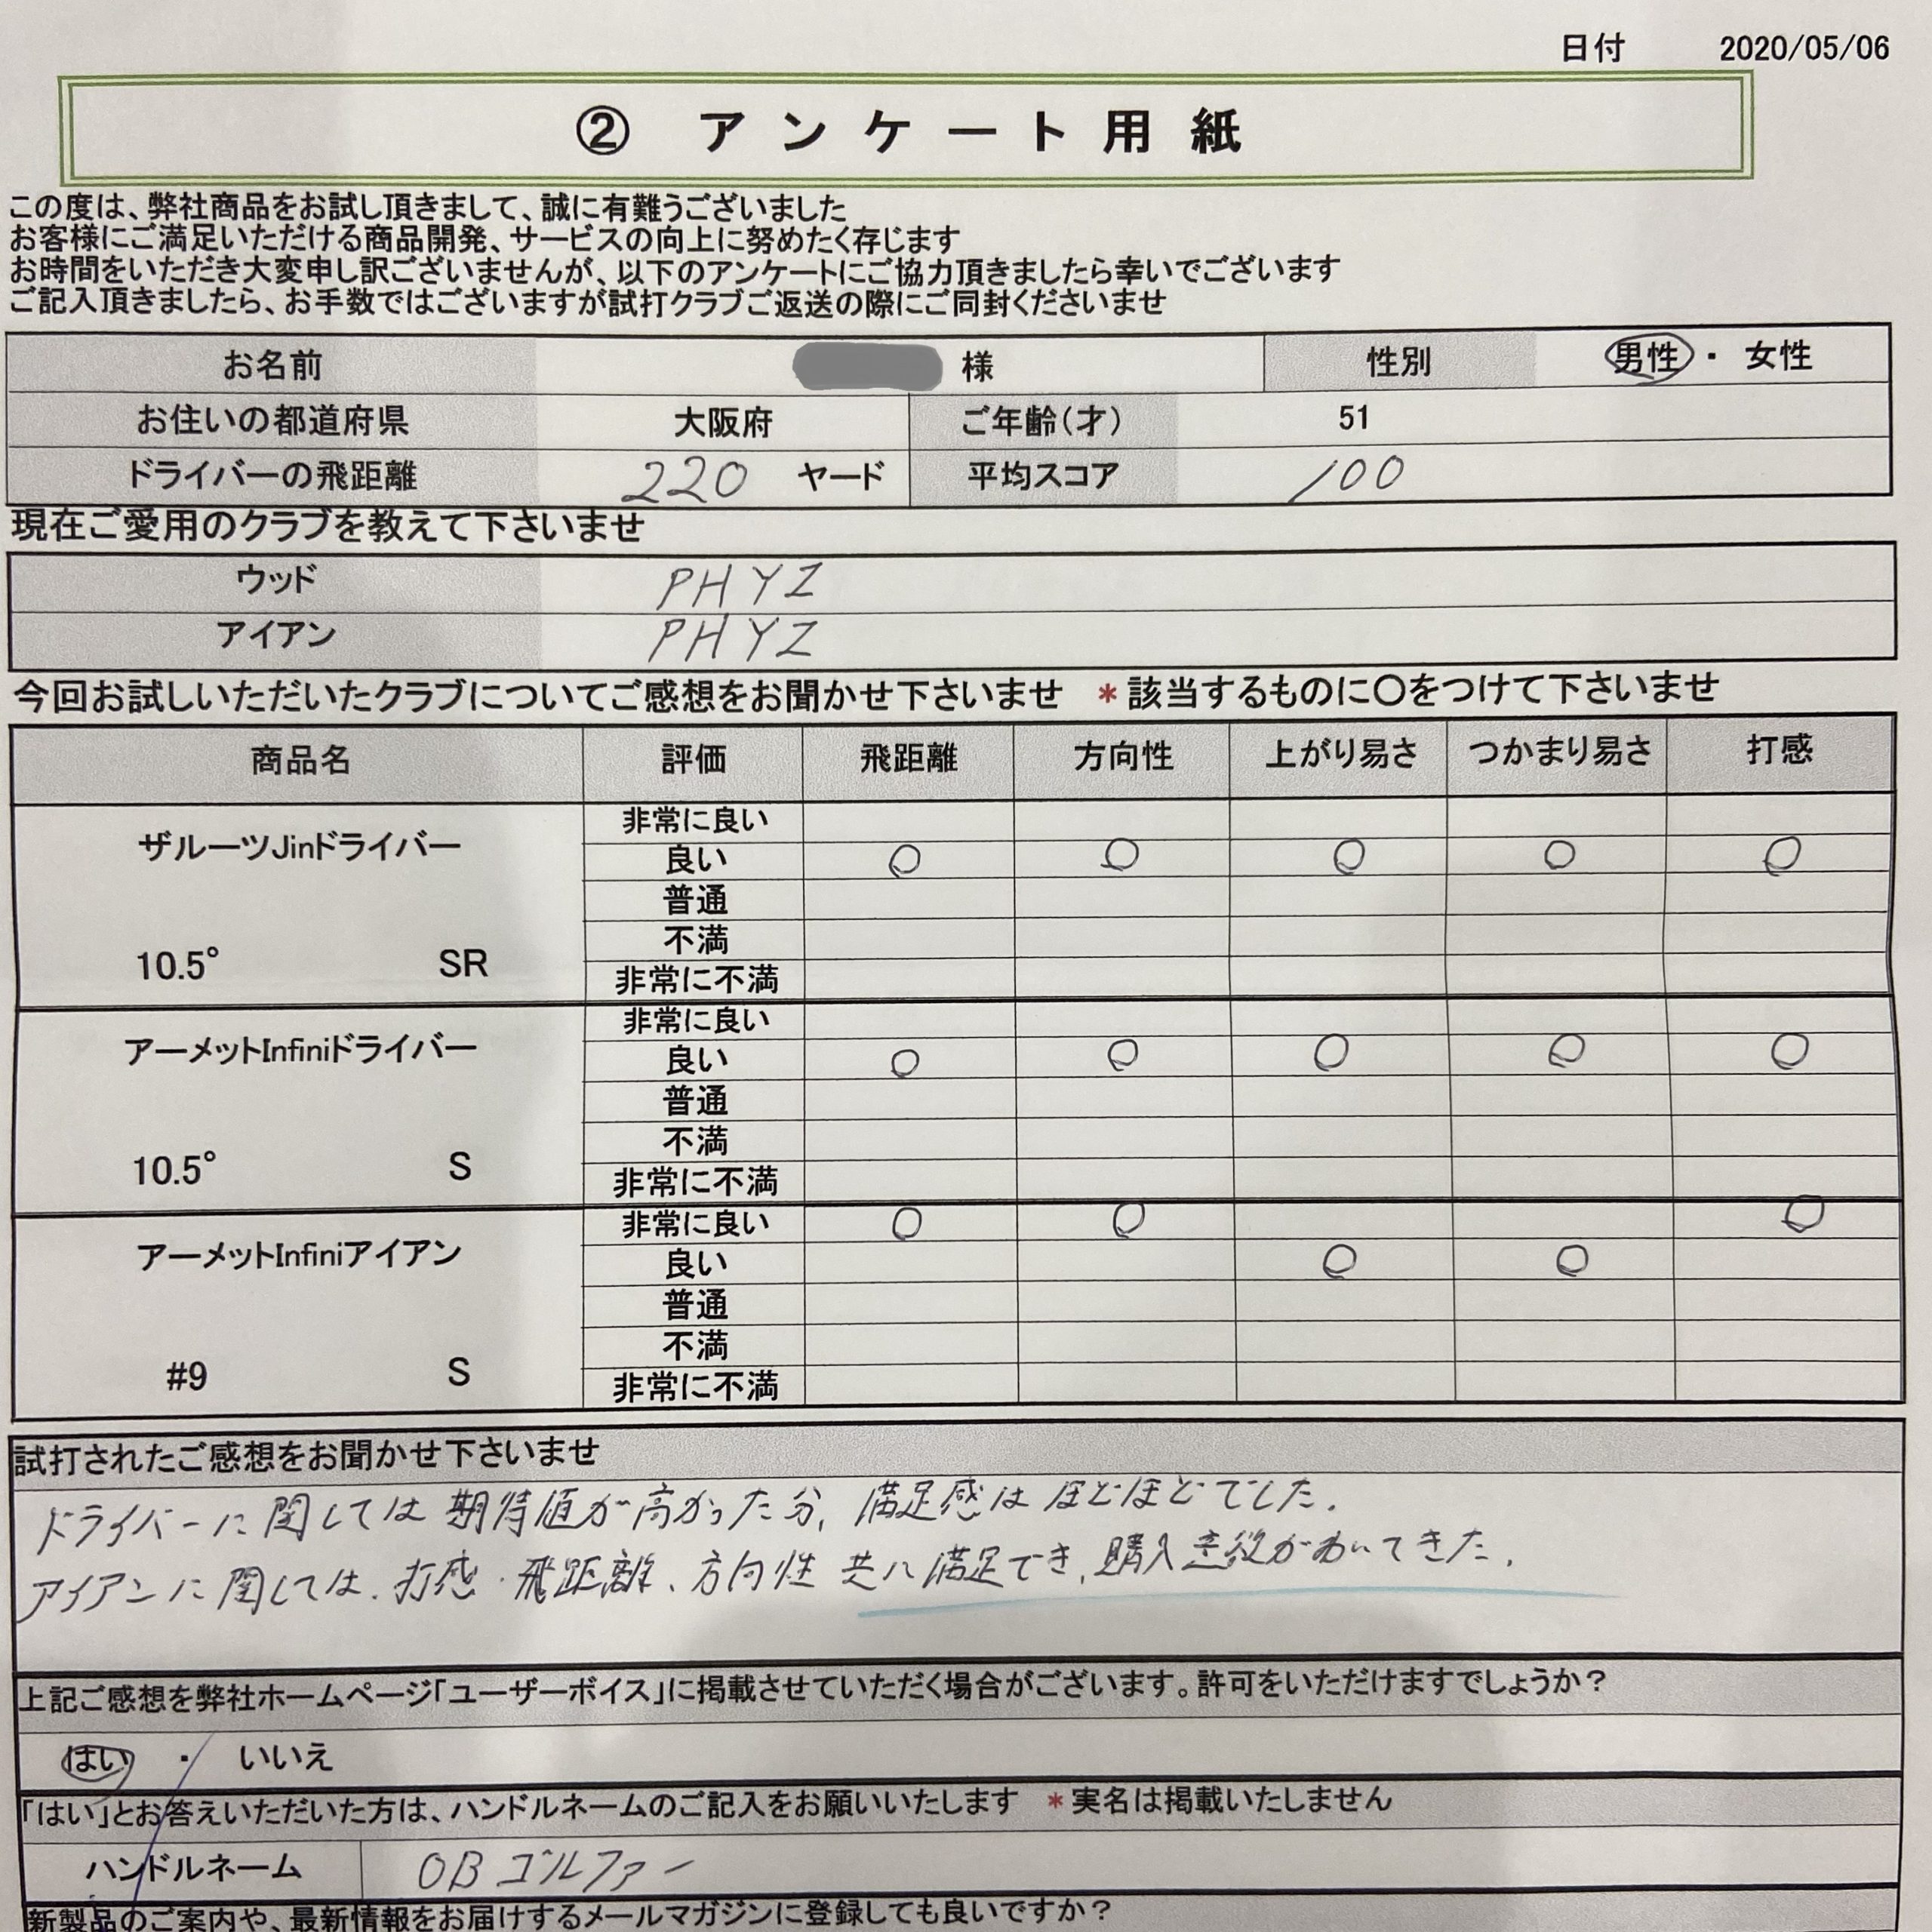 日付 2020/05/06
② アンケート用紙
この度は、弊社商品をお試し頂きまして、誠に有難うございました
お客様にご満足いただける商品開発、サービスの向上に努めたく存じます
お時間をいただき大変申し訳ございませんが、以下のアンケートにご協力頂きましたら幸いでございます
ご記入頂きましたら、お手数ではございますが試打クラブご返送の際にご同封くださいませ
お名前 様 性別 男性 ・ 女性
お住いの都道府県 大阪府 ご年齢(才) 51
ドライバーの飛距離 220 ヤード 平均スコア 100
現在ご愛用のクラブを教えて下さいませ
ウッド PHYZ
アイアン PHYZ
今回お試しいただいたクラブについてご感想をお聞かせ下さいませ *該当するものに〇をつけて下さいませ
商品名 評価 飛距離 方向性 上がり易さ つかまり易さ 打感
ザルーツJinドライバー
10.5° SR
非常に良い
良い ○ ○ ○ ○ ○
普通
不満
非常に不満
アーメットInfiniドライバー
10.5° S
非常に良い
良い ○ ○ ○ ○ ○
普通
不満
非常に不満
アーメットInfiniアイアン
#9 S
非常に良い ○ ○ ○
良い ○ ○
普通
不満
非常に不満
試打されたご感想をお聞かせ下さいませ
ドライバーに関しては期待値が高かった分、満足感はほどほどでした。
アイアンに関しては、打感・飛距離、方向性共に満足でき、購入意欲がわいてきた。
上記ご感想を弊社ホームページ「ユーザーボイス」に掲載させていただく場合がございます。許可をいただけますでしょうか？
はい ・ いいえ
「はい」とお答えいただいた方は、ハンドルネームのご記入をお願いいたします *実名は掲載いたしません
ハンドルネーム OBゴルファー
新製品のご案内や、最新情報をお届けするメールマガジンに登録しても良いですか？